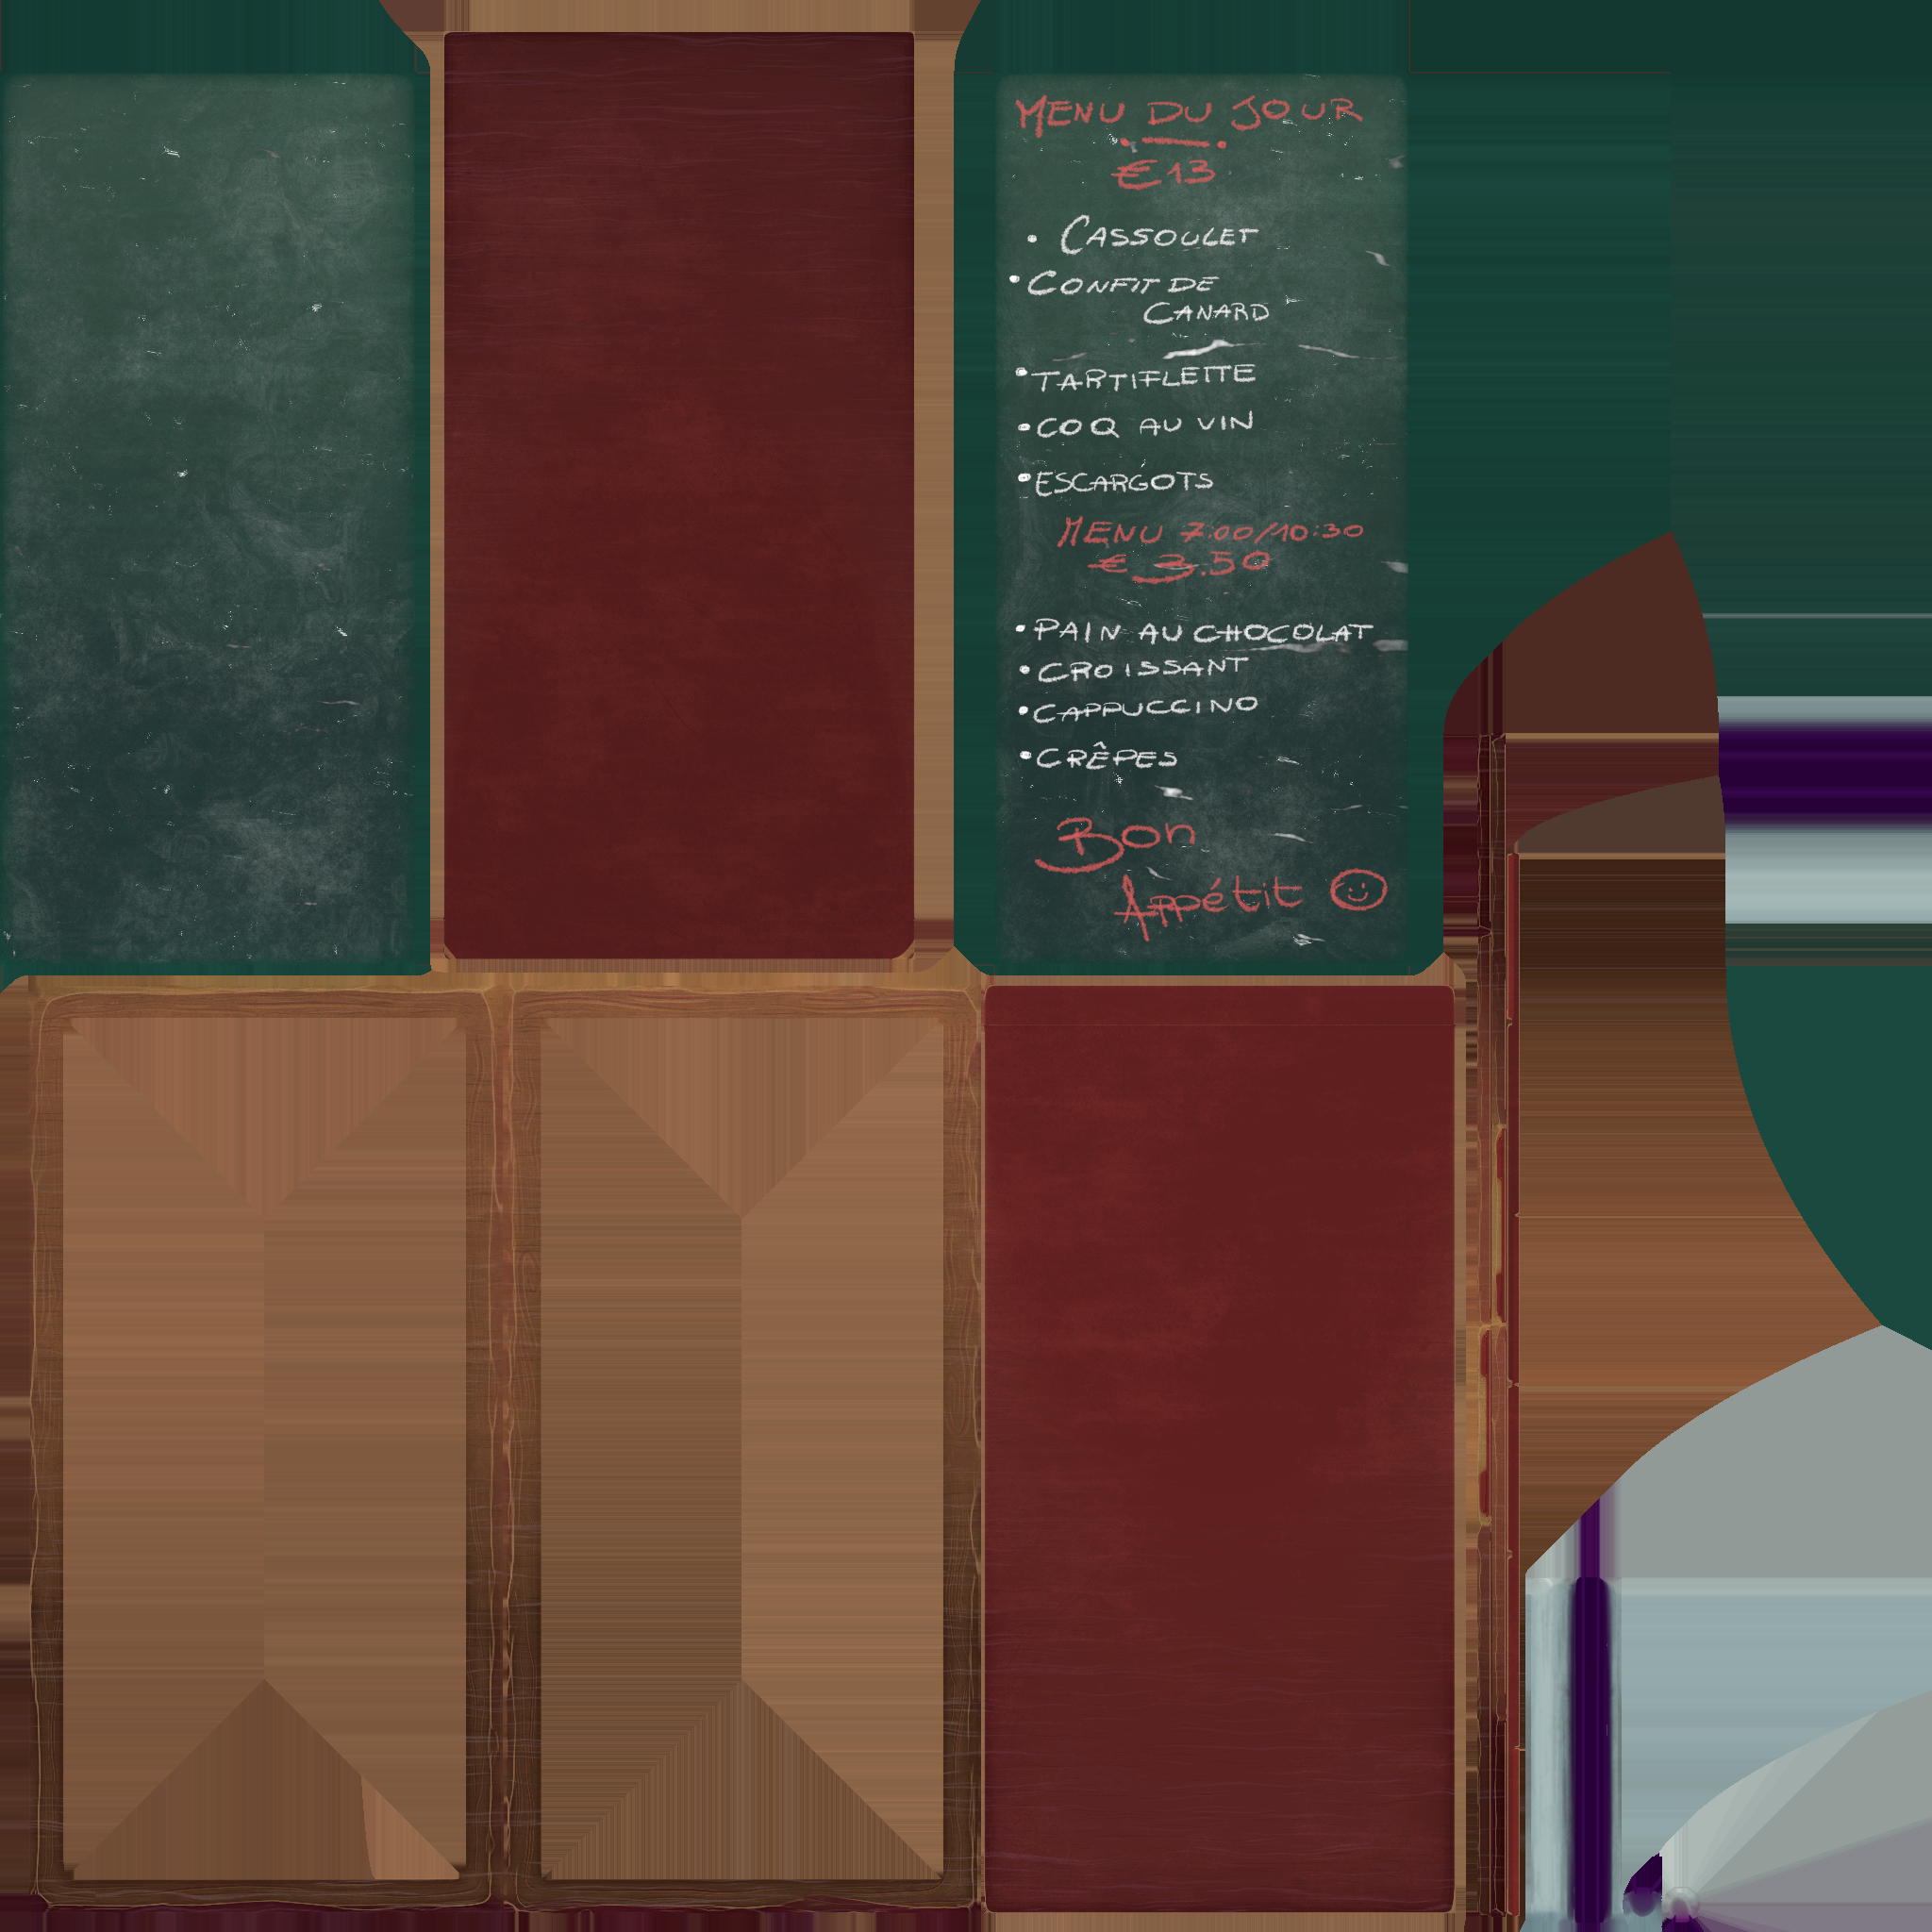 MENU DU JOUR
€13
• CASSOULET
• CONFIT DE
CANARD
• TARTIFLETTE
• COQ AU VIN
• ESCARGOTS
MENU 7:00/10:30
€ 3.50
• PAIN AU CHOCOLAT
• CROISSANT
• CAPPUCCINO
• CRÊPES
Bon
Appétit ☺